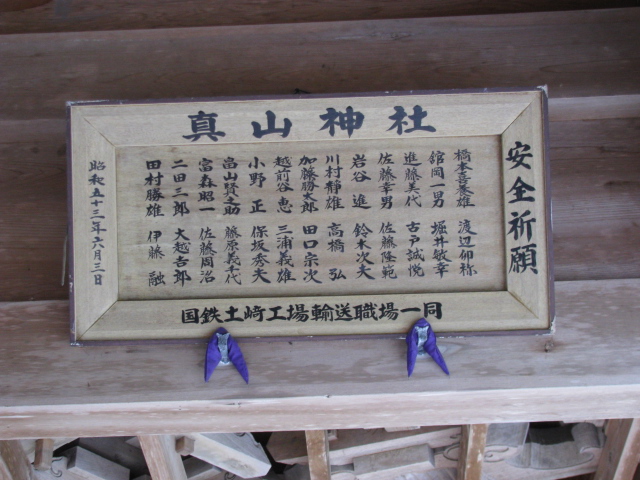 真山神社
安全祈願
橋本喜美雄 渡辺卯称
舘岡一男 堀井敏幸
進藤美代 古戸誠悦
佐藤幸男 佐藤隆範
岩谷進 鈴木次夫
川村静雄 高橋弘
加藤勝太郎 田口宗次
越前谷恵 三浦義雄
小野正 保坂秀夫
畠山賢之助 藤原義千代
富森昭一 佐藤周治
二田三郎 大越吉郎
田村勝雄 伊藤融
昭和五十三年六月三日
国鉄土崎工場輸送職場一同